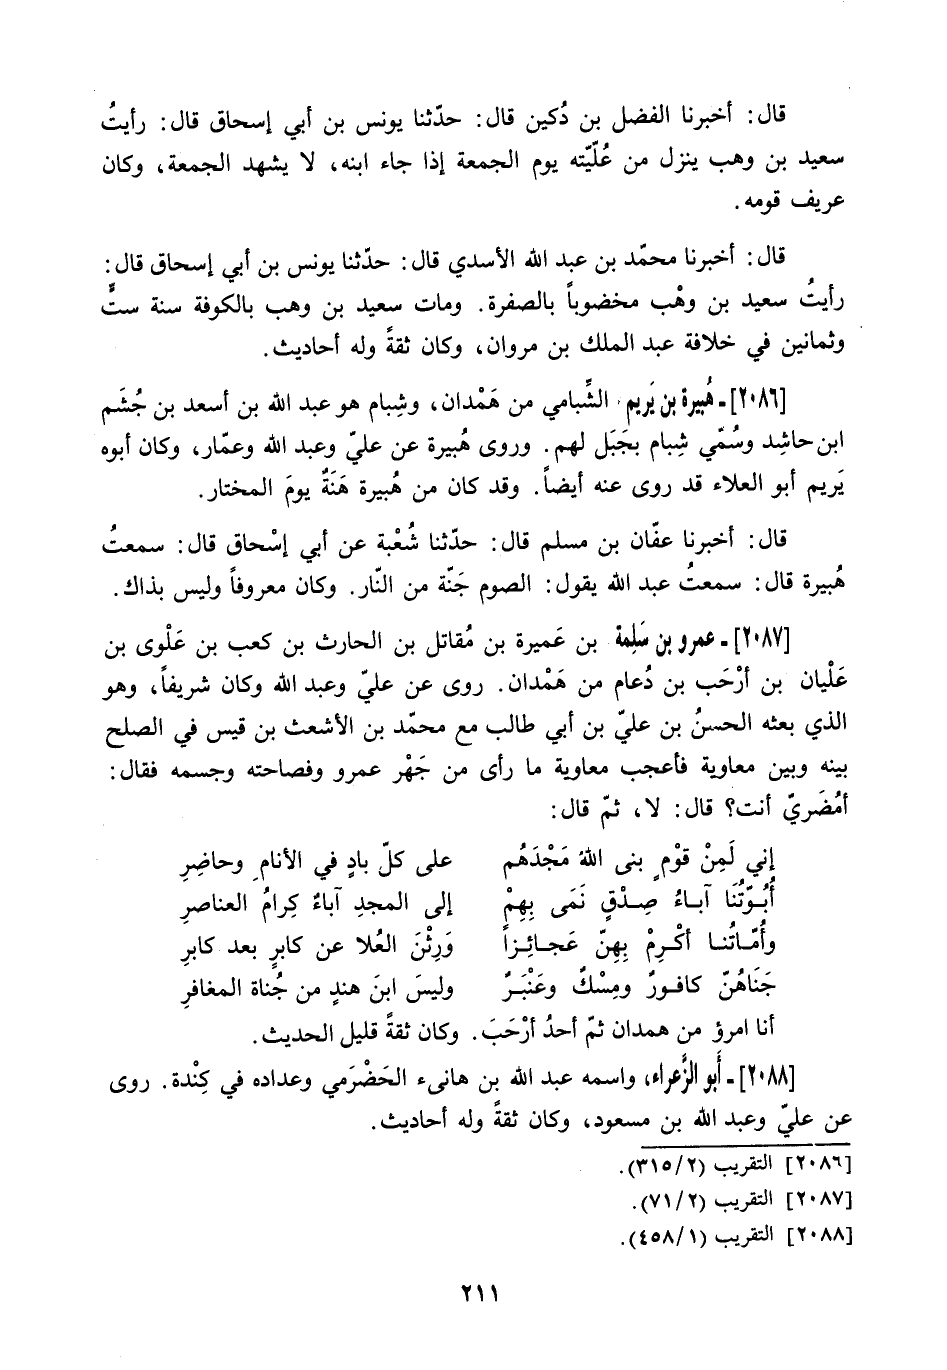 قال: أخبرنا الفضل بن دُكين قال: حدّثنا يونس بن أبي إسحاق قال: رأيتُ
سعيد بن وهب ينزل من عُلّيّته يوم الجمعة إذا جاء ابنه، لا يشهد الجمعة، وكان
عريف قومه.
قال: أخبرنا محمّد بن عبد الله الأسدي قال: حدّثنا يونس بن أبي إسحاق قال:
رأيتُ سعيد بن وهْب مخضوباً بالصفرة. ومات سعيد بن وهب بالكوفة سنة ستٍّ
وثمانين في خلافة عبد الملك بن مروان، وكان ثقةً وله أحاديث.
[٢٠٨٦] ـ هُبيرة بن يَريم، الشِّبامي من هَمْدان، وشِبام هو عبد الله بن أسعد بن جُشَم
ابن حاشِد وسُمّي شِبام بجَبَل لهم. وروى هُبيرة عن عليّ وعبد الله وعمّار، وكان أبوه
يَريم أبو العلاء قد روى عنه أيضاً. وقد كان من هُبيرة هَنَةٌ يومَ المختار.
قال: أخبرنا عفّان بن مسلم قال: حدّثنا شُعْبة عن أبي إسْحاق قال: سمعتُ
هُبيرة قال: سمعتُ عبد الله يقول: الصوم جَنّة من النّار. وكان معروفاً وليس بذاك.
[٢٠٨٧] ـ عمرو بن سَلِمة بن عَميرة بن مُقاتل بن الحارث بن كعب بن عَلْوى بن
عَلْيان بن أرْحَب بن دُعام من هَمْدان. روى عن عليّ وعبد الله وكان شريفاً، وهو
الذي بعثه الحسنُ بن عليّ بن أبي طالب مع محمّد بن الأشعث بن قيس في الصلح
بينه وبين معاوية فأعجب معاوية ما رأى من جَهْر عمرو وفصاحته وجسمه فقال:
أمُضَريّ أنت؟ قال: لا، ثمّ قال:
إني لَمِنْ قوْمٍ بنى اللهُ مَجْدَهُم على كلّ بادٍ في الأنامِ وحاضِرِ
أُبُوّتُنَا آباءُ صِدْقٍ نَمَى بِهِمْ إلى المجدِ آباءٌ كِرامُ العناصرِ
وأُمّاتُنا أكْرِمْ بِهِنّ عَجائِزاً وَرِثْنَ العُلا عن كابرٍ بعد كابرِ
جَنَاهُنّ كافورٌ ومِسْكٌ وعَنْبَرٌ وليسَ ابنَ هندٍ من جُناة المغافرِ
أنا امرؤ من همدان ثمّ أحدُ أرْحَبَ. وكان ثقةً قليل الحديث.
[٢٠٨٨] ـ أبو الزَّعراء، واسمه عبد الله بن هانىء الحَضْرَمي وعداده في كِنْدة. روى
عن عليّ وعبد الله بن مسعود، وكان ثقةً وله أحاديث.
[٢٠٨٦] التقريب (٣١٥/٢).
[٢٠٨٧] التقريب (٧١/٢).
[٢٠٨٨] التقريب (٤٥٨/١).
٢١١